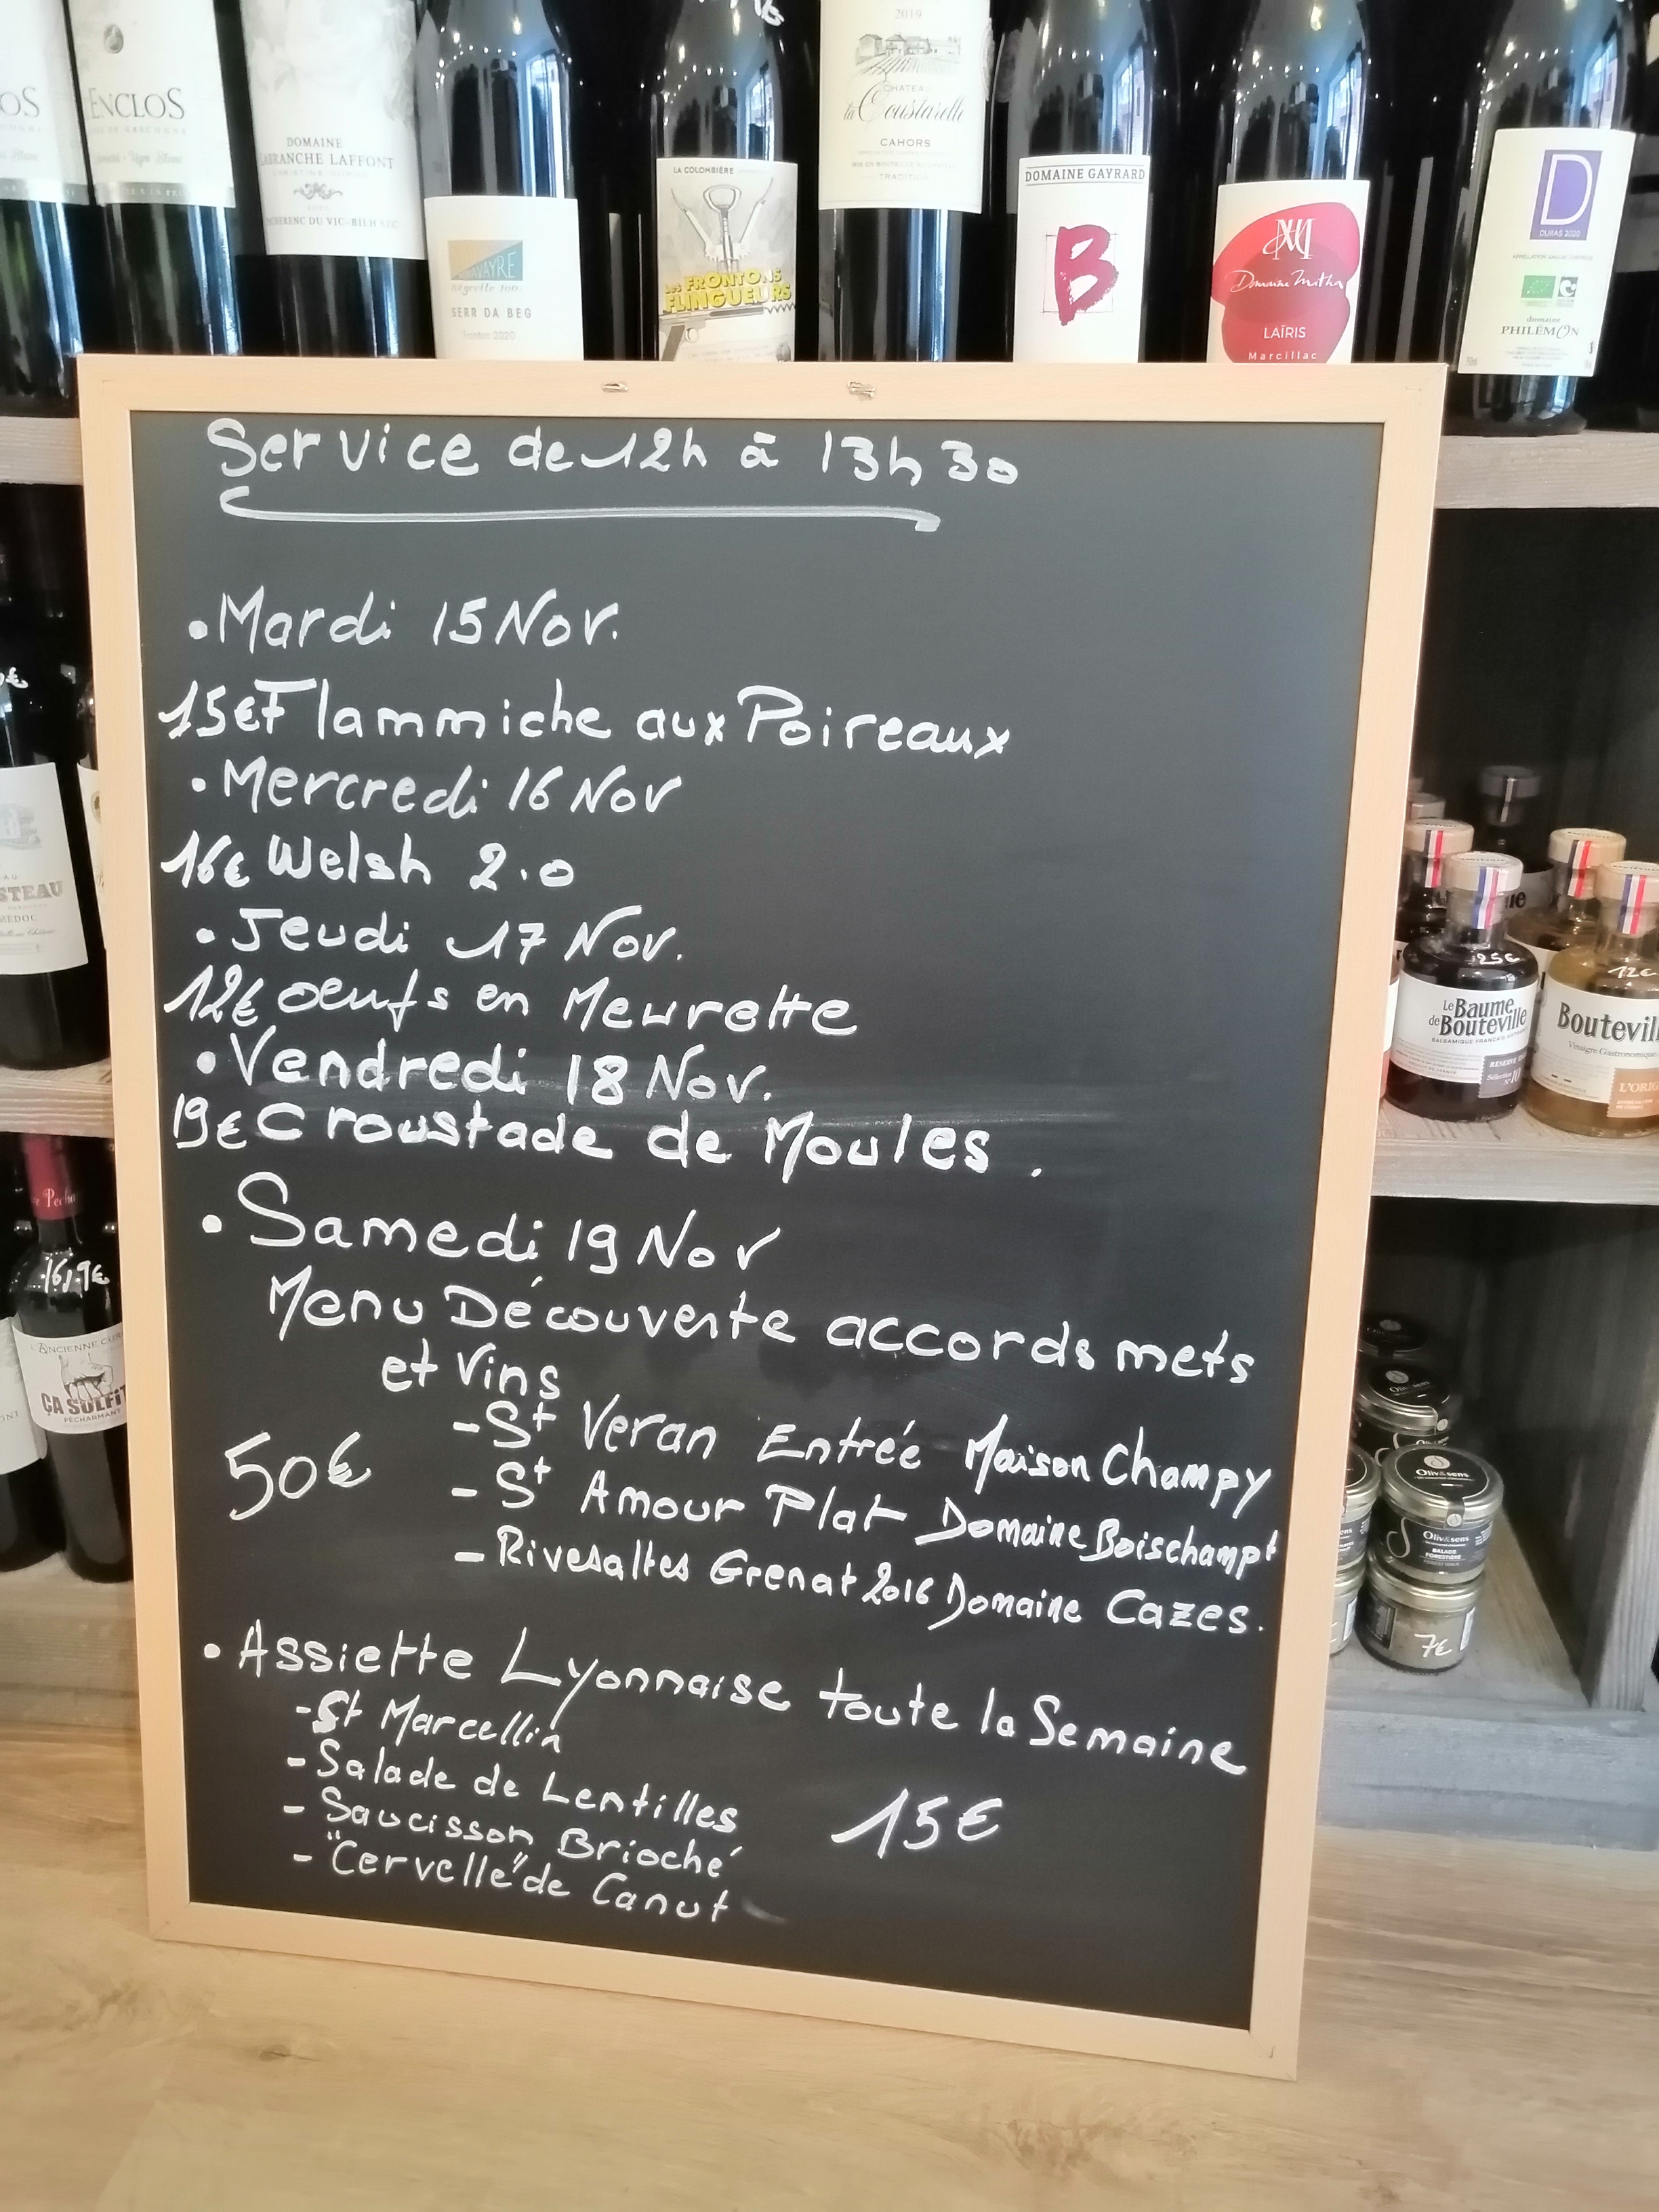 2019
CHATEAU
la Coustarelle
CAHORS
TRADITION
ENCLOS
DOMAINE
LABRANCHE LAFFONT
LA COLOMBIÈRE
LES FRONTONS
FLINGUEURS
négrette 100%
SERR DA BEG
Fronton 2020
DOMAINE GAYRARD
B
Domaine Mathu
LAÏRIS
Marcillac
D
DURAS 2020
domaine
PHILÉMON
Service de 12h à 13h30
• Mardi 15 Nov.
15€ Flammiche aux Poireaux
• Mercredi 16 Nov
16€ Welsh 2.0
• Jeudi 17 Nov.
12€ oeufs en Meurette
• Vendredi 18 Nov.
19€ Croustade de Moules .
• Samedi 19 Nov
Menu Découverte accords mets
et Vins
- St Veran Entrée Maison Champy
50€
- St Amour Plat Domaine Boischampt
- Rivesaltes Grenat 2016 Domaine Cazes.
• Assiette Lyonnaise toute la Semaine
- St Marcellin
- Salade de Lentilles
- Saucisson Brioché
15€
- "Cervelle" de Canut
MEDOC
16,9€
L'ANCIENNE CUR
ÇA SULFIT
PÉCHARMANT
25€
Le Baume
de Bouteville
12€
Boutevill
Vinaigre Gastronomique
L'ORIG
Oliv&sens
Oliv&sens
BALADE
FORESTIÈRE
7€